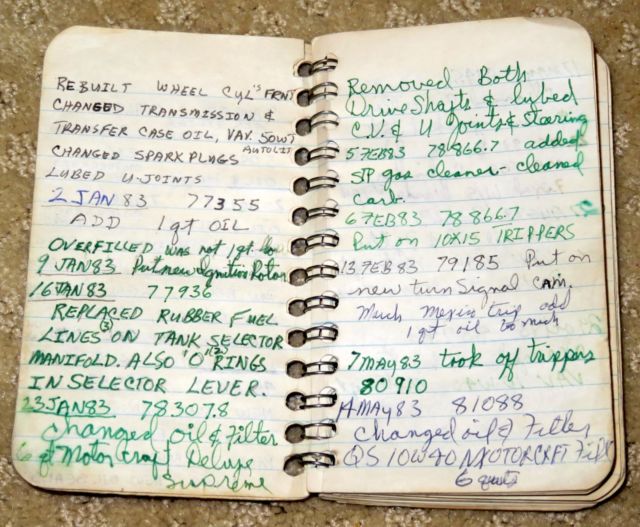 REBUILT WHEEL CYL'S FRNT
CHANGED TRANSMISSION &
TRANSFER CASE OIL, VAV. 50WT
CHANGED SPARKPLUGS AUTOLITE
LUBED U-JOINTS
2 JAN 83 77355
ADD 1 qt OIL
OVERFILLED was not 1qt low
9 JAN 83 Put new Ignition Rotor
16 JAN 83 77936
REPLACED RUBBER FUEL
LINES (3) ON TANK SELECTOR
MANIFOLD. ALSO "O" (12) RINGS
IN SELECTOR LEVER.
23 JAN 83 78307.8
Changed oil & Filter
6 qt Motorcraft Deluxe
Supreme
Removed Both
DriveShafts & lubed
C.V. & U Joints & Steering
5 FEB 83 78866.7 added
STP gas cleaner - cleaned
carb.
6 FEB 83 78866.7
Put on 10X15 TRIPPERS
13 FEB 83 79185 Put on
new turn Signal cam.
Much Mexico trip add
1 qt oil too much
7 MAY 83 took off trippers
80910
14 MAY 83 81088
Changed oil & Filter
QS 10W40 MOTORCRFT Filt
6 quarts